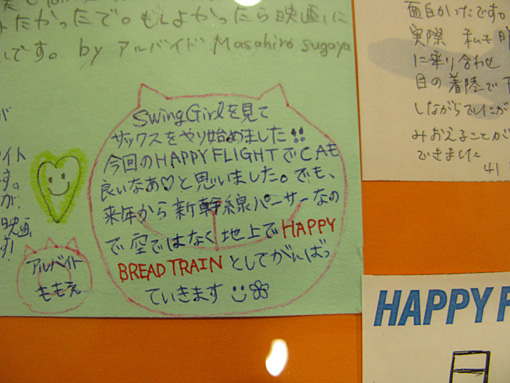 たかったで。もしよかったら映画に
です。by アルバイド Masahiro sugaya
Swing Girlを見て
サックスをやり始めました!!
今回のHAPPY FLIGHTでCAも
良いなあ♡と思いました。でも、
来年から新幹線パーサーなの
で空ではなく地上でHAPPY
BREAD TRAINとしてがんばっ
ていきます
アルバイト
ももえ
イト
す。
が、
映画
面白かいたです。
実際 私も
に乗り合わせ
目の着陸で
しながら
みおえることが
できました
41
HAPPY F